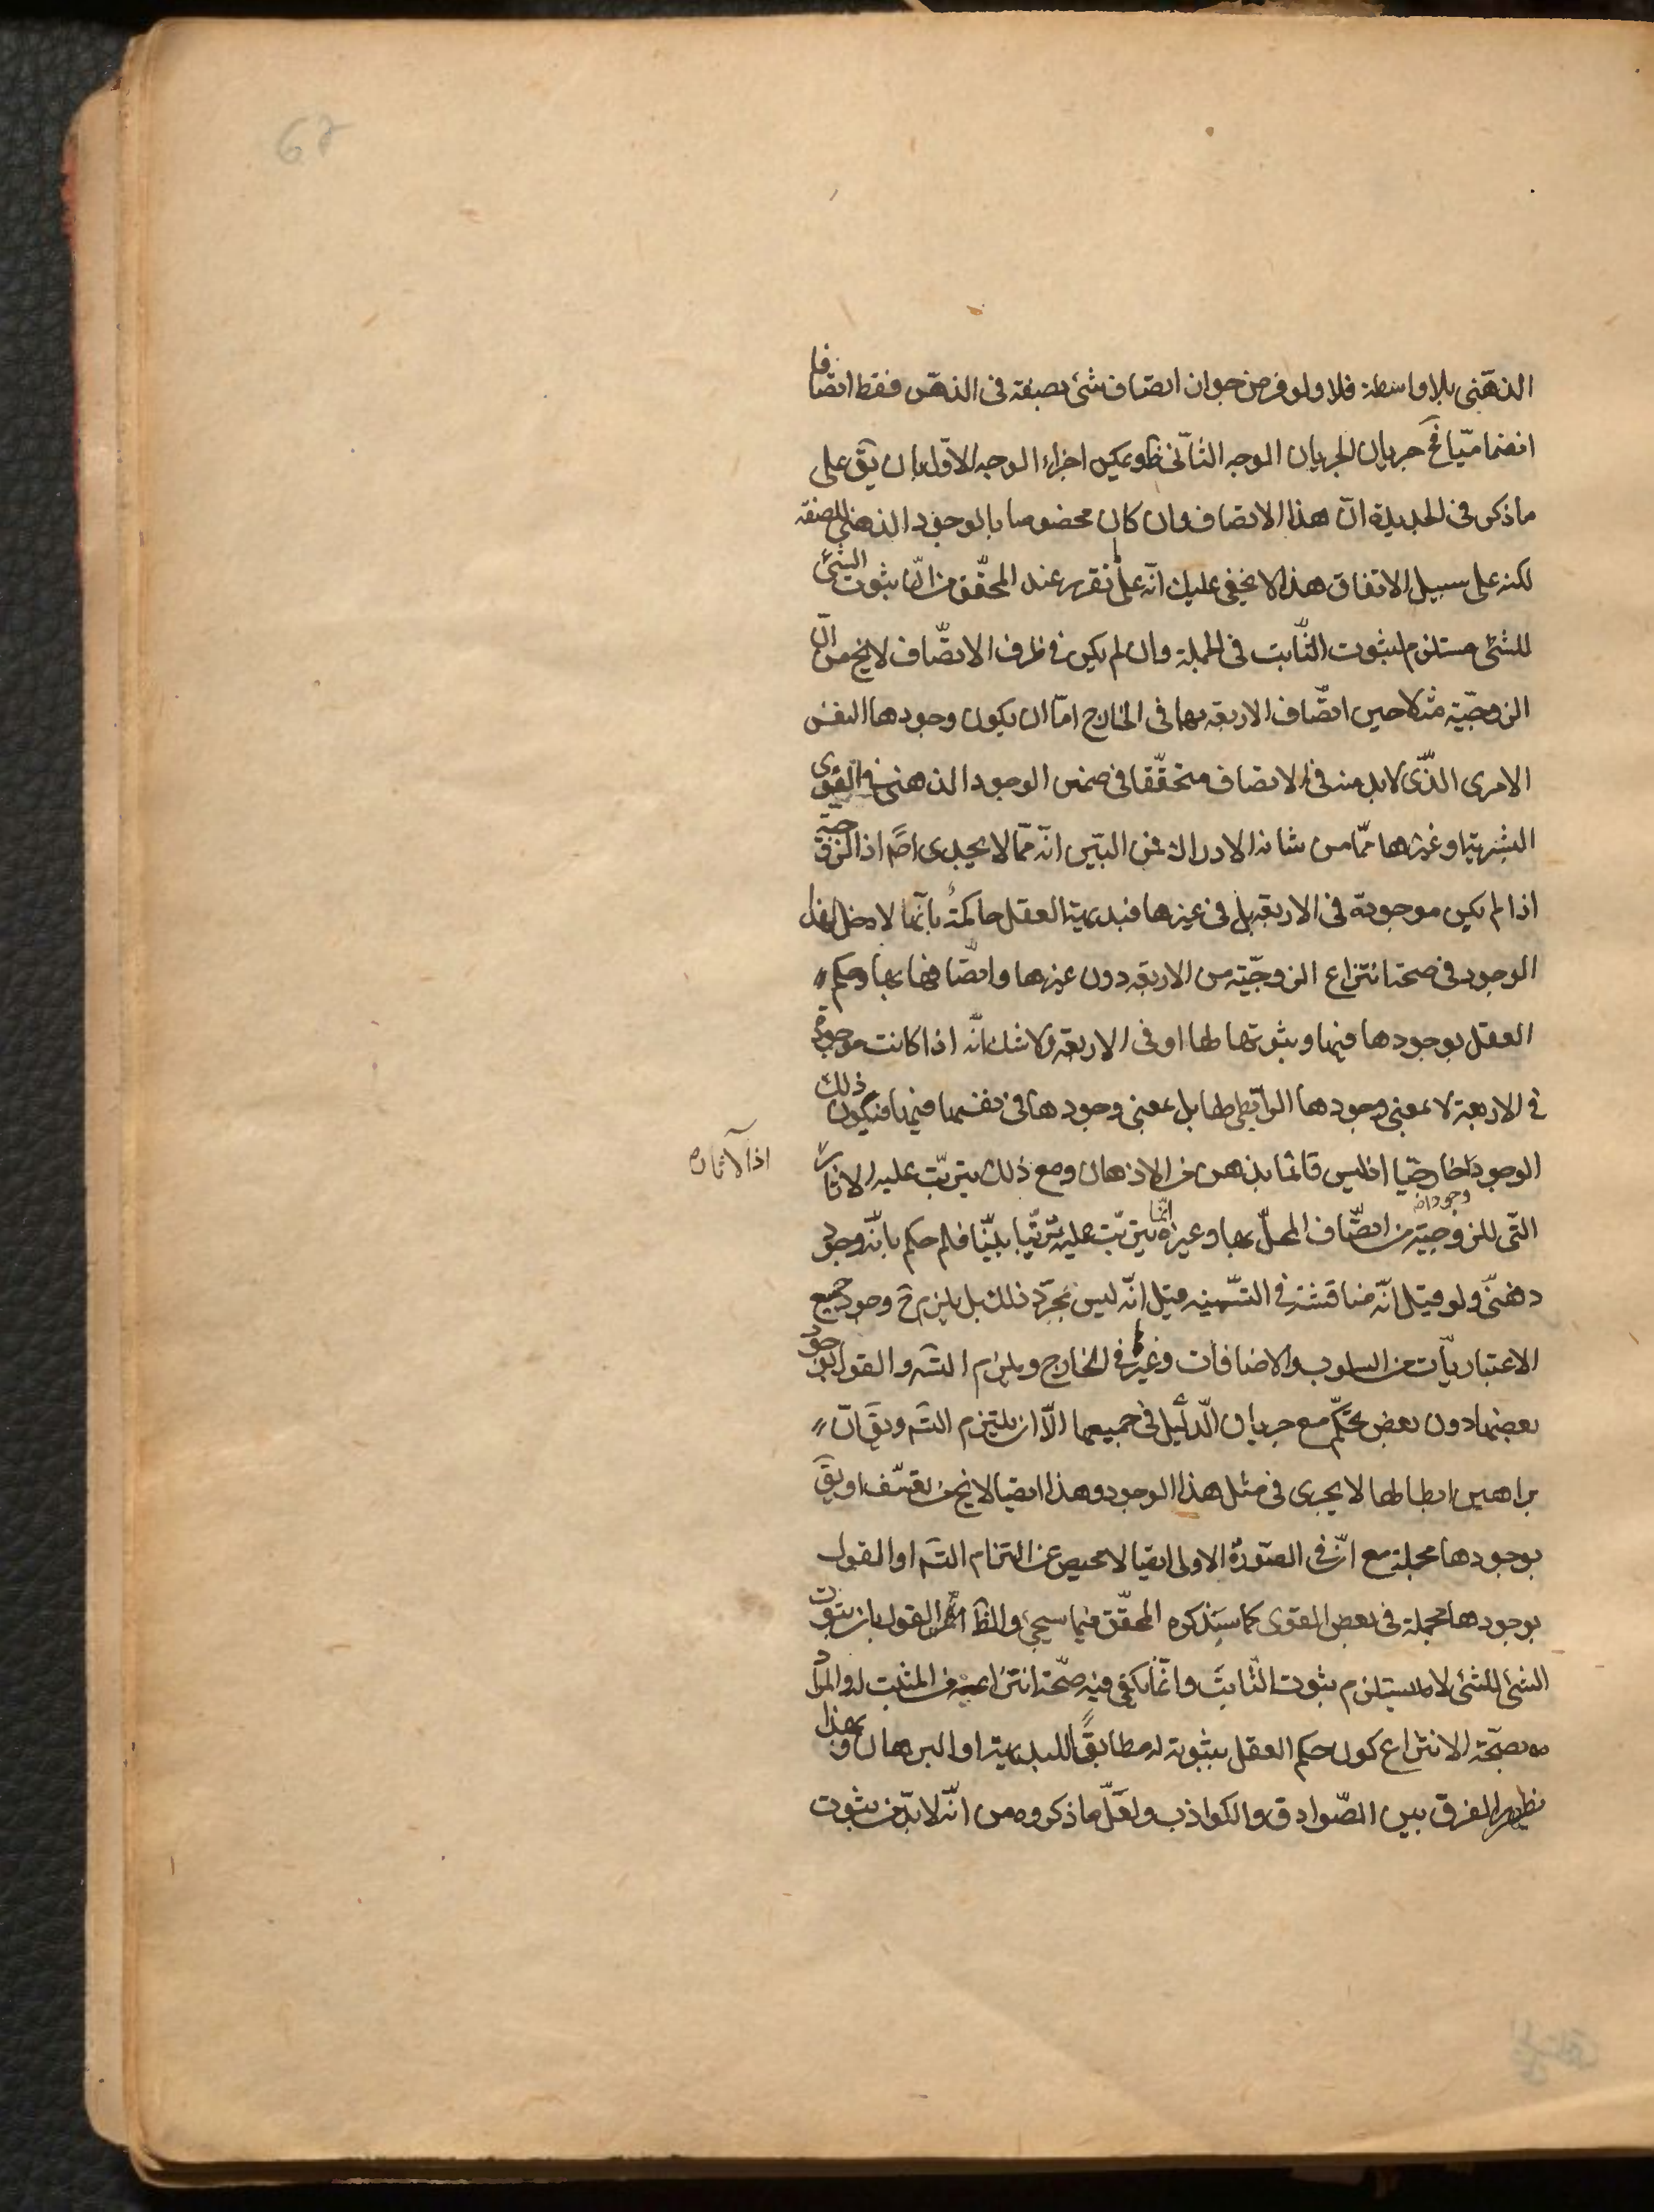 67
الذهنى بلا واسطة فلا ولو فرض جواز اتصاف شئ بصفة فى الذهن فقط اتصافا
انضماميّا فح جريان الجريان الوجه الثانى ظ ويمكن اجراء الوجه الاوّل بان يق على
ما ذكر فى الجديدة انّ هذا الاتصاف وان كان مخصوصا بالوجود الذهنى للصفة
لكنه على سبيل الاتفاق هذا لا يخفى عليك انّه على ما تقرر عند المحقّق من انّ ثبوت الشئ
للشئ مستلزم لثبوت الثّابت فى الجملة وان لم يكن فى ظرف الاتصّاف لا يخ من انّ
الزوجيّة مثلا حين اتصّاف الاربعة بها فى الخارج امّا ان يكون وجودها النفس
الامرى الذّى لا بد منه فى الاتصاف متحقّقا فى ضمن الوجود الذهنى فى القوى
البشرية او غيرها ممّا من شانه الادراك فمن البيّن انّه ممّا لا يجدى اصلا اذ الزوجيّة
اذا لم يكن موجودة فى الاربعة بل فى غيرها فبديهة العقل حاكمة بانّها لا دخل لهذا
الوجود فى صحة انتزاع الزوجيّة من الاربعة دون غيرها واتصّافها بها وحكم
العقل بوجودها فيها وثبوتها لها او فى الاربعة ولا شك انّه اذا كانت موجودة
فى الاربعة لا بمعنى وجودها الرّابطى لها بل بمعنى وجودها فى نفسها فيها فيكون ذلك
الوجود خارجيّا اذ ليس قائما بذهن من الاذهان ومع ذلك يترتّب عليه الاثار
اذ الآثار
وجودا
التّى للزوجيّة من اتصّاف المحلّ بها وغيره انّما يترتّب عليه ترتّبا بيّنا فلم حكم بانّه وجود
ذهنىّ ولو قيل انّه مناقشة فى التسّمية قيل انّه ليس مجرّد ذلك بل يلزم ح وجود جميع
الاعتباريّات من السلوب والاضافات وغيرها فى الخارج ويلزم التسـ والقول بوجود
بعضها دون بعض تحكّم مع جريان الدّليل فى جميعها الاّ ان يلتزم التسـ ويق انّ
براهين ابطالها لا يجرى فى مثل هذا الوجود وهذا ايضا لا يخ من تعسّف او يق
بوجودها مجملة مع انّ فى الصّورة الاولى ايضا لا محيص عن التزام التسـ او القول
بوجودها مجملة فى بعض القوى كما سيذكره المحقّق فيما سيجئ والظاهر القول بان ثبوت
الشئ للشئ لا يستلزم ثبوت الثّابت وانّما يكفى فيه صحّة انتزاعه من المثبت له والمراد
بصحّة الانتزاع كون حكم العقل بثبوته له مطابقا للبديهة او البرهان وبهذا
يظهر الفرق بين الصّوادق والكواذب ولعلّ ما ذكروه من انّه لا بدّ من ثبوت